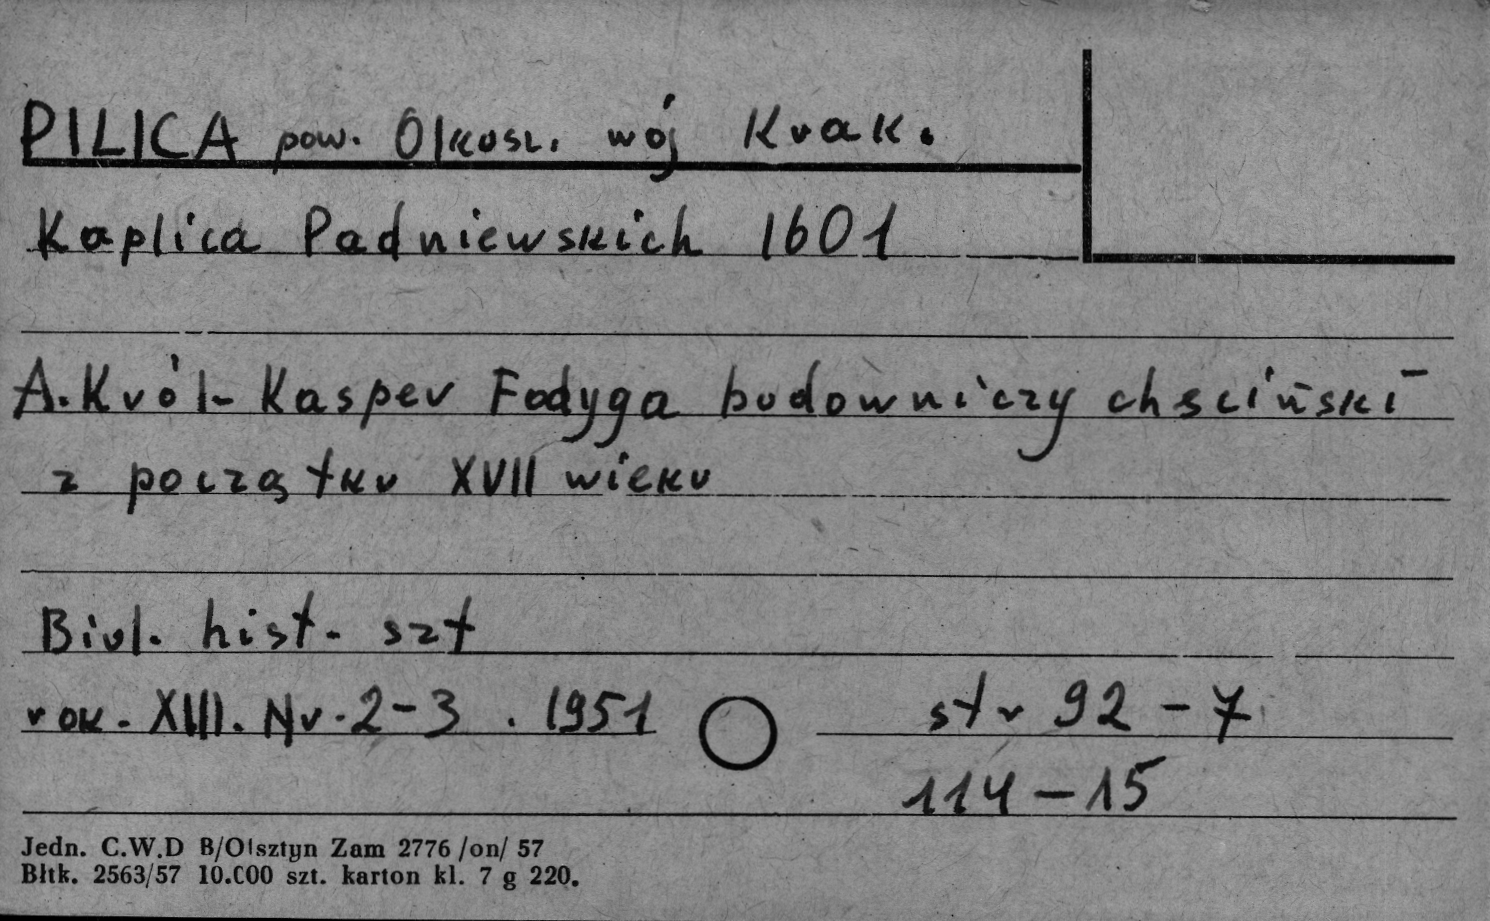 PILICA pow. Olkusz. wój Krak.
Kaplica Padniewskich 1601
A. Król - Kasper Fodyga budowniczy chsciński -
z początku XVII wieku
Biul. hist. szt
rok. XIII. Nr. 2-3 . 1951 str 92 - 7
114 - 15
Jedn. C.W.D B/Olsztyn Zam 2776 /on/ 57
Błtk. 2563/57 10.000 szt. karton kl. 7 g 220.